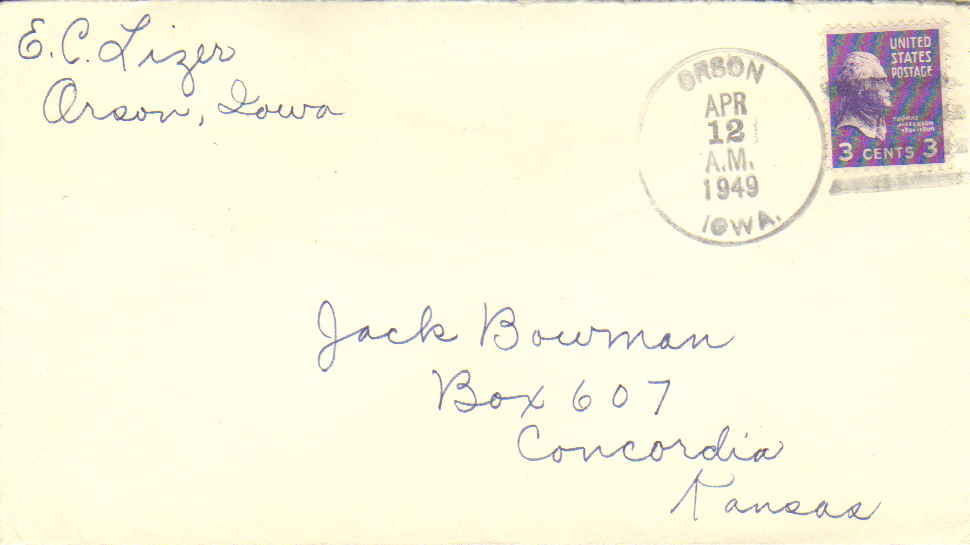 E. C. Lizer
Orson, Iowa
ORSON
APR
12
A.M.
1949
IOWA.
UNITED
STATES
POSTAGE
THOMAS
JEFFERSON
3 CENTS 3
Jack Bowman
Box 607
Concordia
Kansas